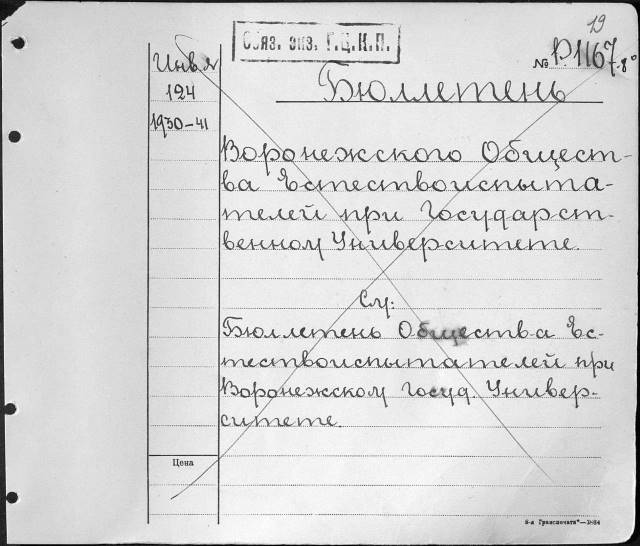 19
Обяз. экз. Г.Ц.К.П.
№ Р.1167.8°
Инв. №
124
1930-41
Бюллетень
Воронежского Общест-
ва Естествоиспыта-
телей при Государст-
венном Университете.
См:
Бюллетень Общества Ес-
тествоиспытателей при
Воронежском Госуд. Универ-
ситете.
Цена